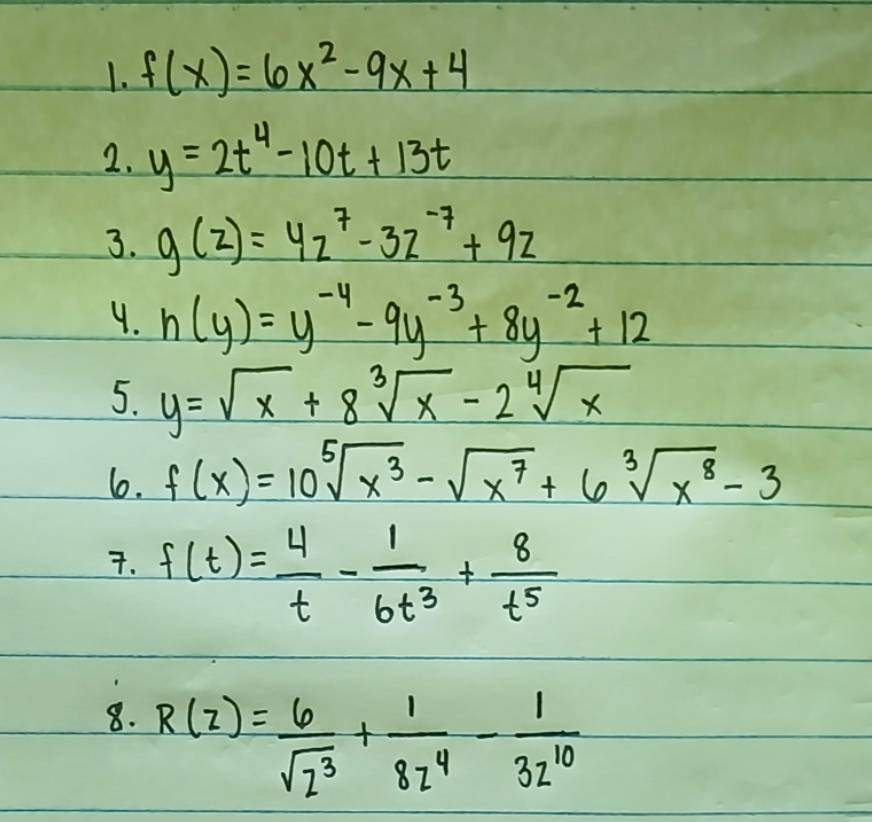 1. f(x) = 6x² - 9x + 4
2. y = 2t⁴ - 10t + 13t
3. g(z) = 4z⁷ - 3z⁻⁷ + 9z
4. h(y) = y⁻⁴ - 9y⁻³ + 8y⁻² + 12
5. y = √x + 8∛x - 2∜x
6. f(x) = 10⁵√(x³) - √(x⁷) + 6∛(x⁸) - 3
7. f(t) = 4/t - 1/(6t³) + 8/t⁵
8. R(z) = 6/√(z³) + 1/(8z⁴) - 1/(3z¹⁰)